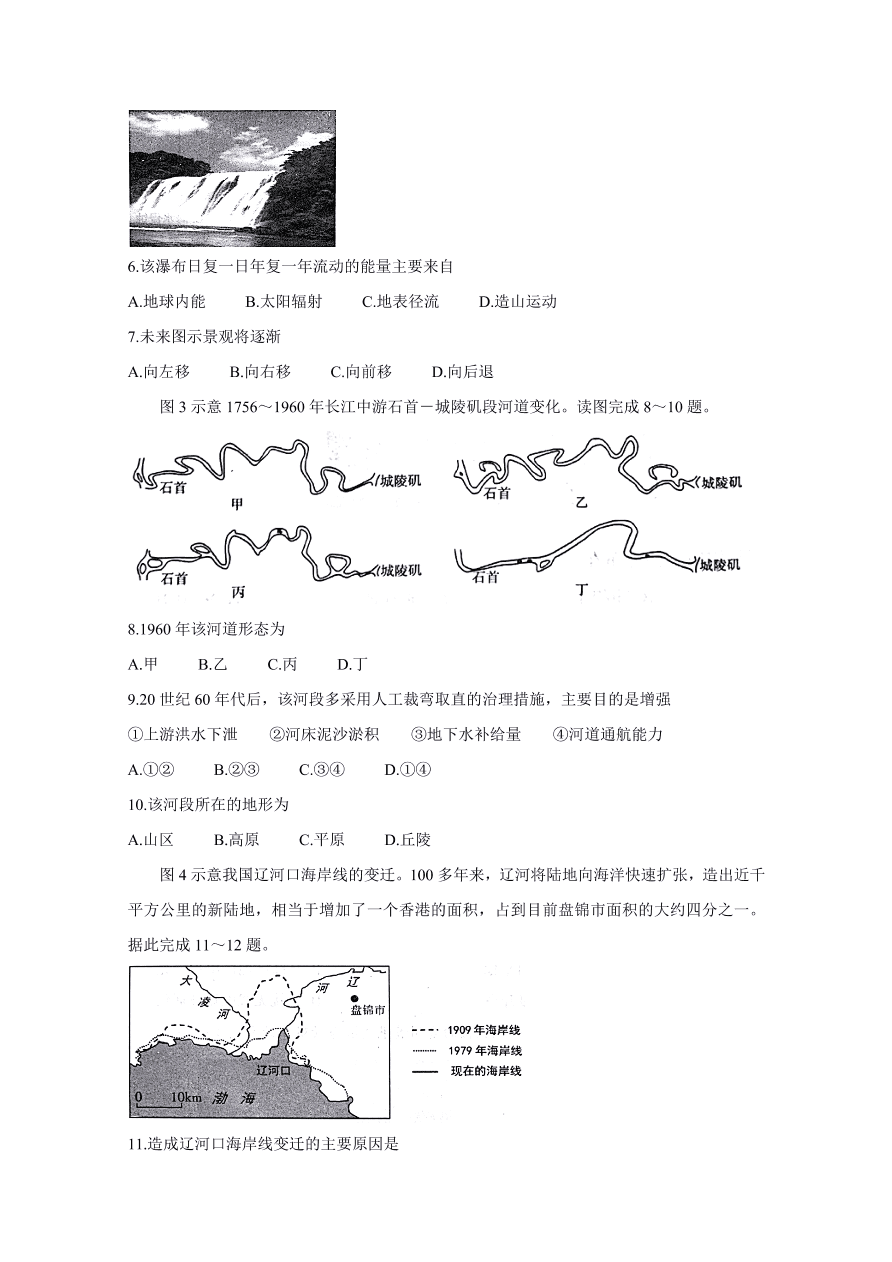 6.该瀑布日复一日年复一年流动的能量主要来自
A.地球内能 B.太阳辐射 C.地表径流 D.造山运动
7.未来图示景观将逐渐
A.向左移 B.向右移 C.向前移 D.向后退
图 3 示意 1756～1960 年长江中游石首－城陵矶段河道变化。读图完成 8～10 题。
石首 城陵矶
甲
石首 城陵矶
乙
石首 城陵矶
丙
石首 城陵矶
丁
8.1960 年该河道形态为
A.甲 B.乙 C.丙 D.丁
9.20 世纪 60 年代后，该河段多采用人工裁弯取直的治理措施，主要目的是增强
①上游洪水下泄 ②河床泥沙淤积 ③地下水补给量 ④河道通航能力
A.①② B.②③ C.③④ D.①④
10.该河段所在的地形为
A.山区 B.高原 C.平原 D.丘陵
图 4 示意我国辽河口海岸线的变迁。100 多年来，辽河将陆地向海洋快速扩张，造出近千
平方公里的新陆地，相当于增加了一个香港的面积，占到目前盘锦市面积的大约四分之一。
据此完成 11～12 题。
大凌河
河 辽
盘锦市
辽河口
0 10km 渤 海
1909 年海岸线
1979 年海岸线
现在的海岸线
11.造成辽河口海岸线变迁的主要原因是